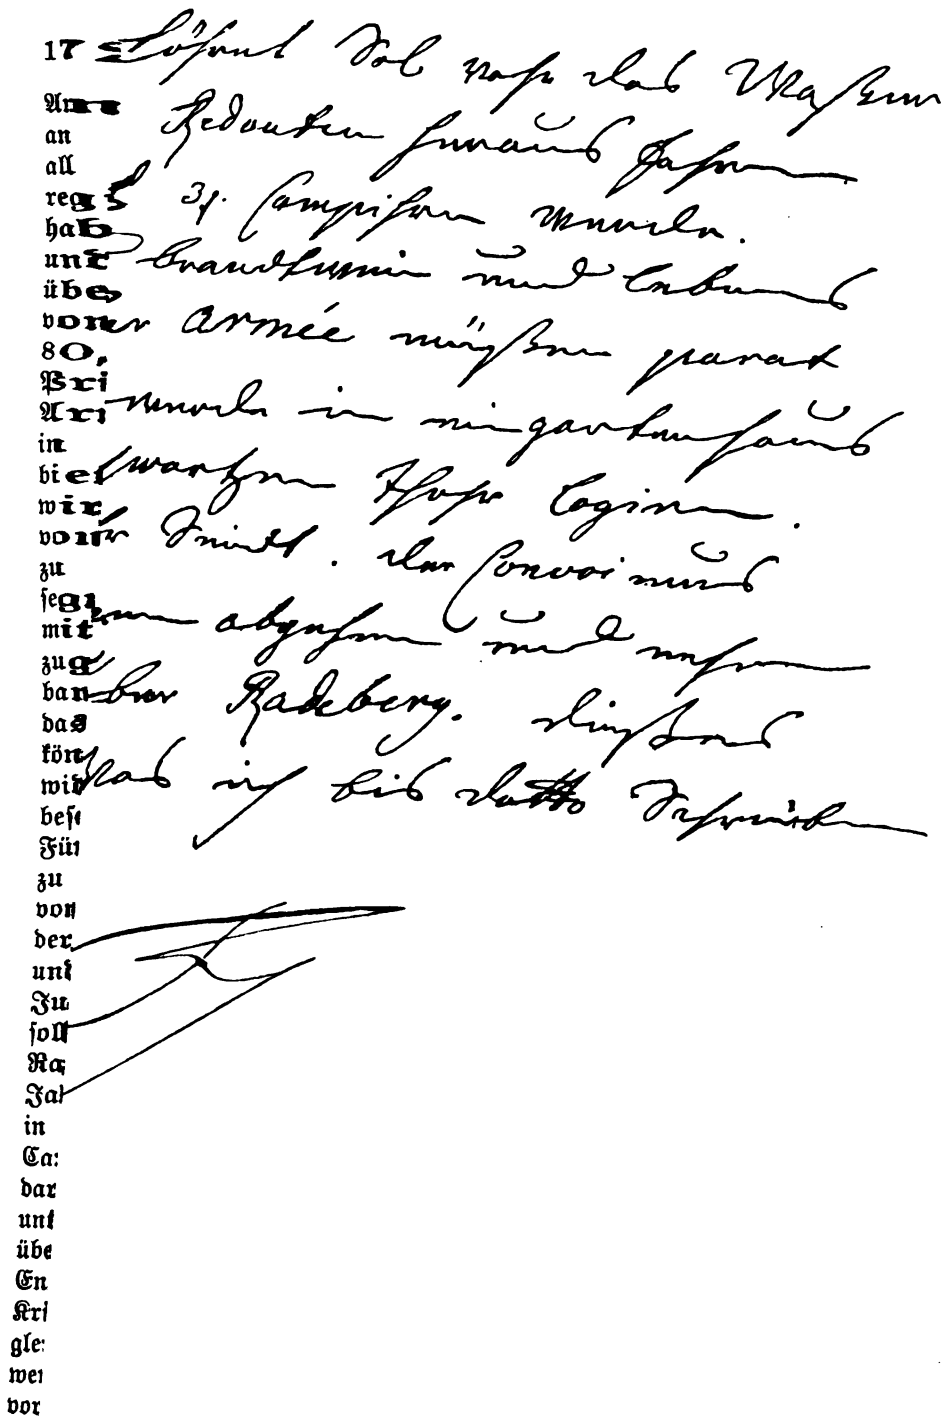 17
an
all
reg
hab
und
übe
von
80,
Pri
Ari
in
bie
wir
von
zu
seg
mit
zug
ban
das
kön
wid
bes
Für
zu
von
der
und
Ju
soll
Ra
Ja
in
Ca
dar
unt
übe
En
Kri
gle
wei
vor
Sol das
Redouten heraus fahren
3/. Campihren werde.
brandtwein und lebens
er Armée müßen parat
werde in ein gartenhaus
wartzen Thohr logiren.
Feindt. der Convoi mus
abgehen und nehmen
ber Radeberg. dießes
was ich bis datto Schreiben